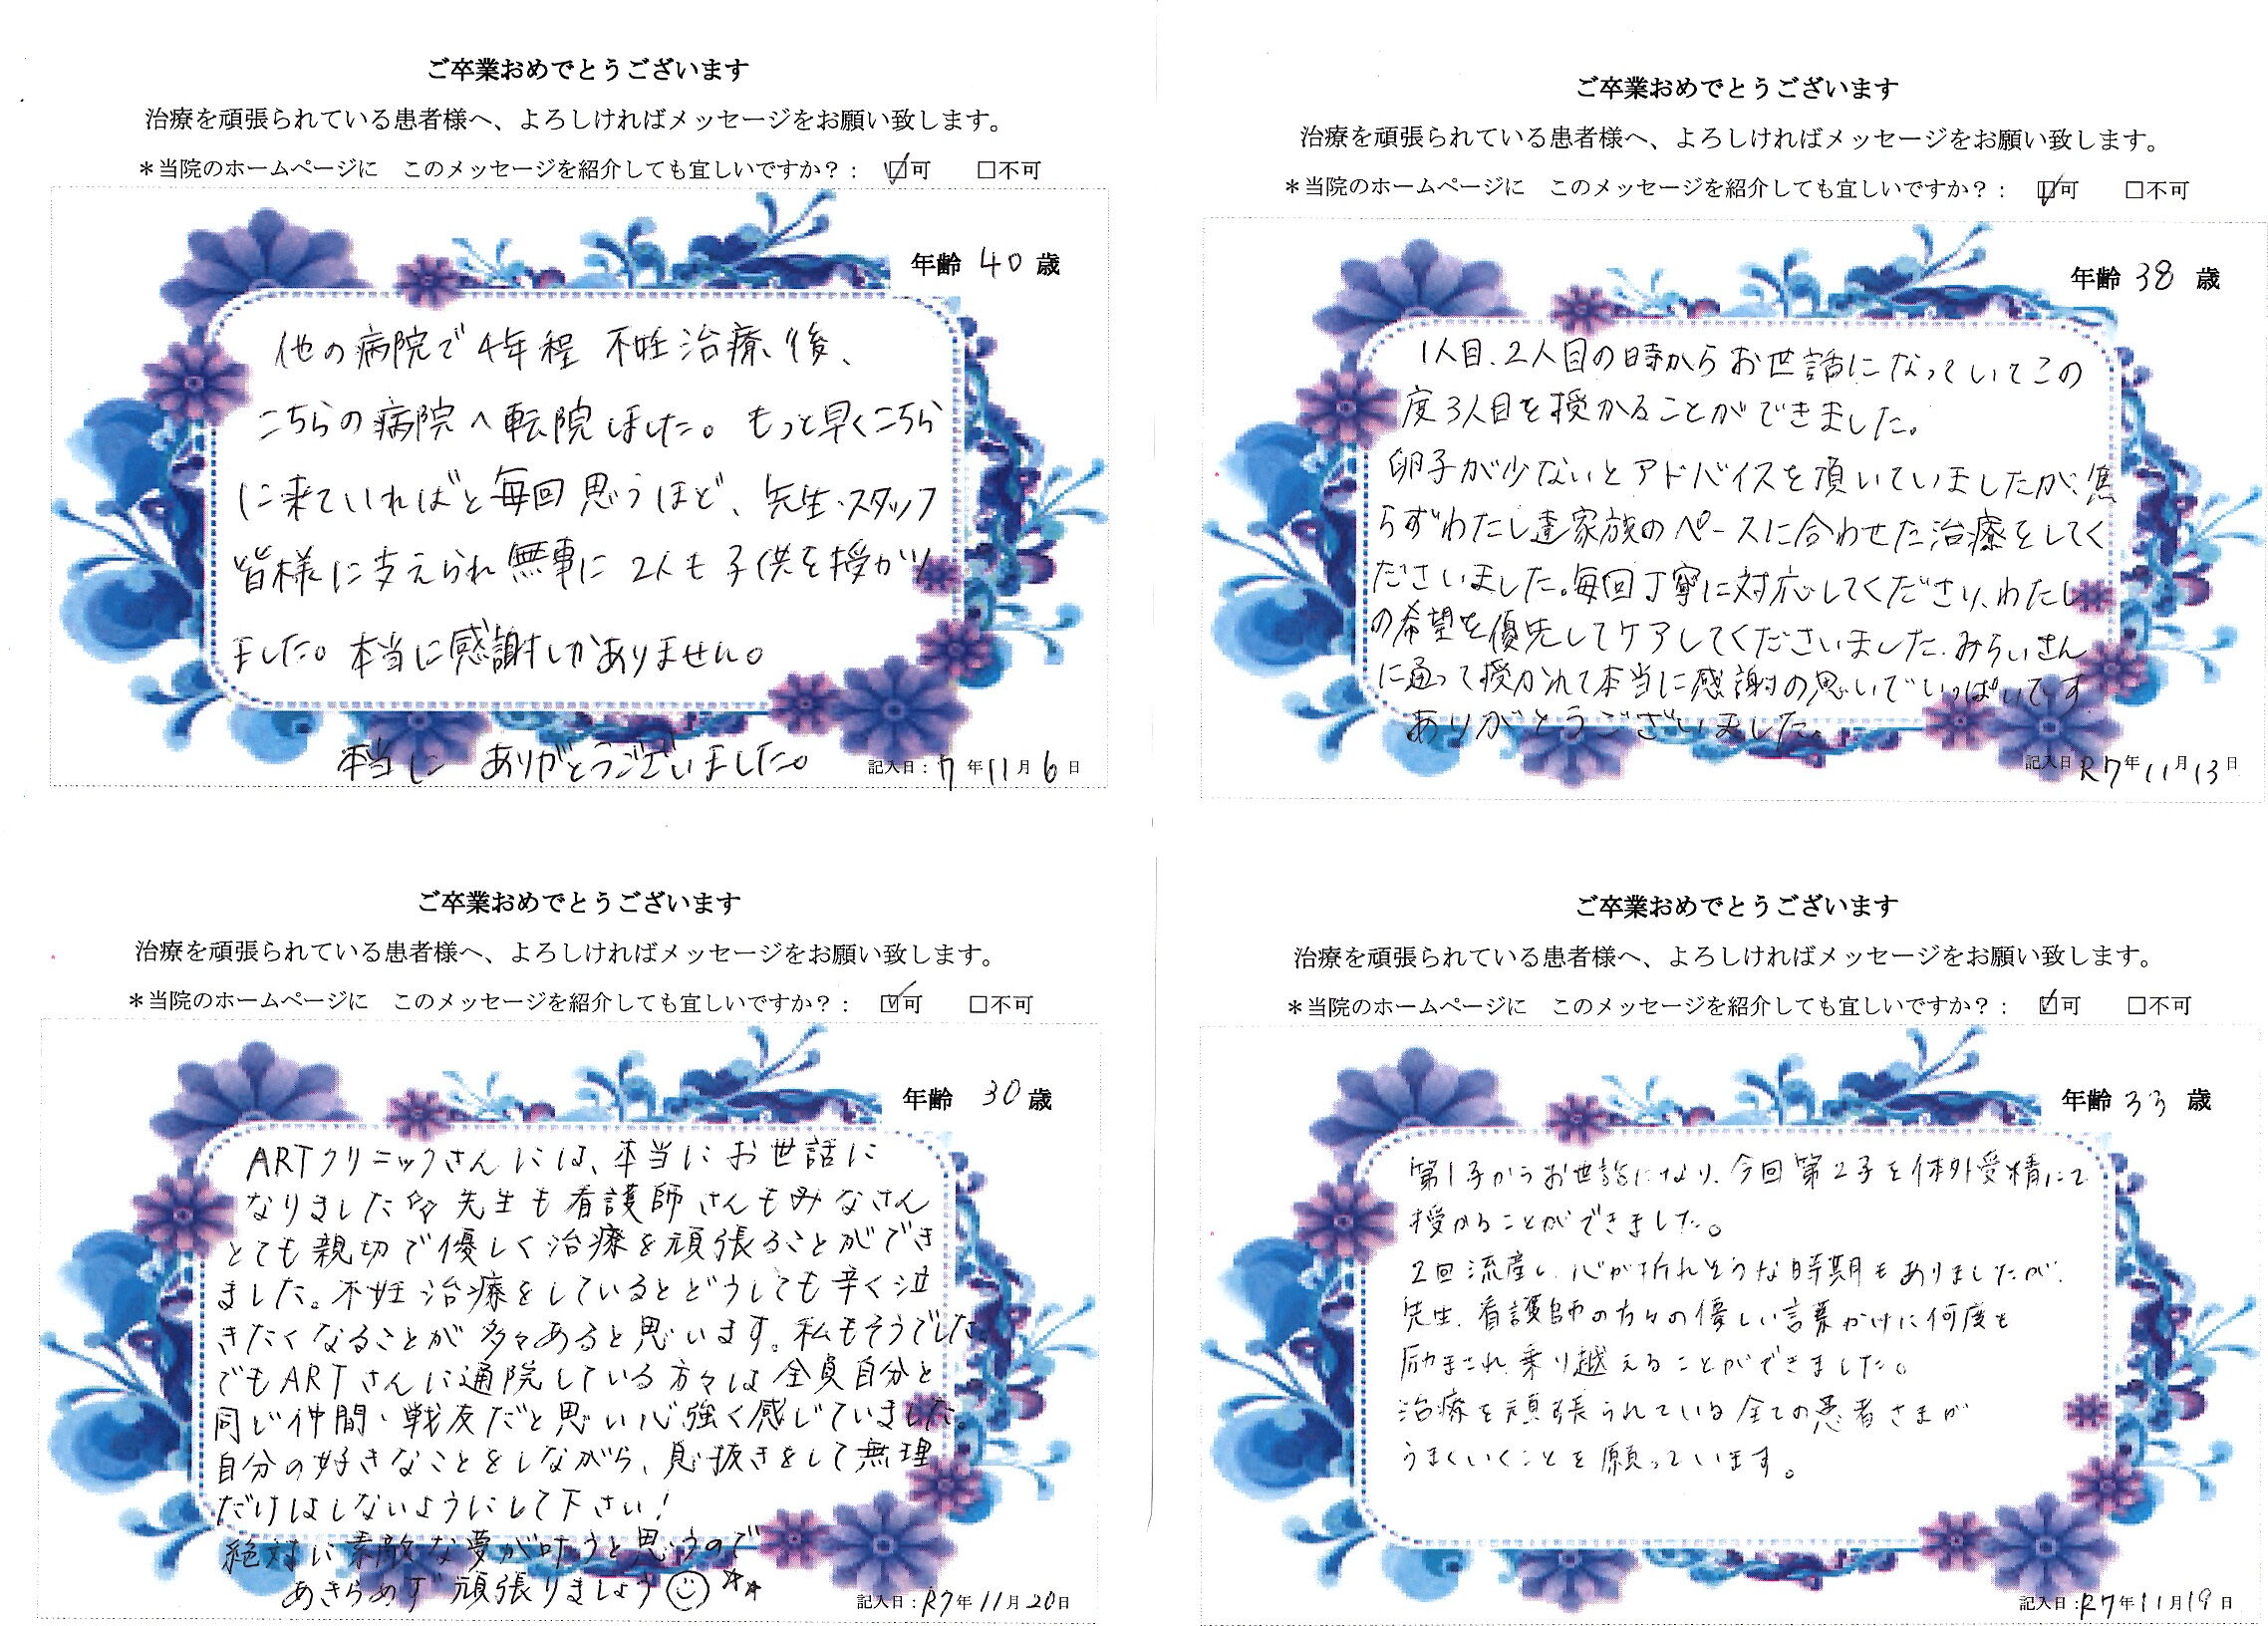 ご卒業おめでとうございます
治療を頑張られている患者様へ、よろしければメッセージをお願い致します。
＊当院のホームページに　このメッセージを紹介しても宜しいですか？： ☑可　□不可
年齢 40 歳
他の病院で4年程 不妊治療後、
こちらの病院へ転院しました。もっと早くこちら
に来ていればと毎回思うほど、先生・スタッフ
皆様に支えられ無事に 2人も子供を授かり
ました。本当に感謝しかありません。
本当に ありがとうございました。
記入日：7年11月6日
ご卒業おめでとうございます
治療を頑張られている患者様へ、よろしければメッセージをお願い致します。
＊当院のホームページに　このメッセージを紹介しても宜しいですか？： ☑可　□不可
年齢 38 歳
1人目、2人目の時からお世話になっていてこの
度3人目を授かることができました。
卵子が少ないとアドバイスを頂いていましたが、焦
らずわたし達家族のペースに合わせた治療をしてく
ださいました。毎回丁寧に対応してくださり、わたし
の希望を優先してケアしてくださいました。みらいさん
に通って授かれて本当に感謝の思いでいっぱいです
ありがとうございました。
記入日 R7年11月13日
ご卒業おめでとうございます
治療を頑張られている患者様へ、よろしければメッセージをお願い致します。
＊当院のホームページに　このメッセージを紹介しても宜しいですか？： ☑可　□不可
年齢 30 歳
ARTクリニックさんには、本当にお世話に
なりました☆☆ 先生も看護師さんもみなさん
とても親切で優しく治療を頑張ることができ
ました。不妊治療をしているとどうしても辛く泣
きたくなることが多々あると思います。私もそうでした。
でもARTさんに通院している方々は全員自分と
同じ仲間・戦友だと思い心強く感じていました。
自分の好きなことをしながら、息抜きをして無理
だけはしないようにして下さい！
絶対に素敵な夢が叶うと思うので
あきらめず頑張りましょう☺☆☆
記入日：R7年11月20日
ご卒業おめでとうございます
治療を頑張られている患者様へ、よろしければメッセージをお願い致します。
＊当院のホームページに　このメッセージを紹介しても宜しいですか？： ☑可　□不可
年齢 33 歳
第1子からお世話になり、今回第2子を体外受精にて
授かることができました。
2回流産し、心が折れそうな時期もありましたが、
先生、看護師の方々の優しい言葉かけに何度も
励まされ、乗り越えることができました。
治療を頑張られている全ての患者さまが
うまくいくことを願っています。
記入日：R7年11月19日